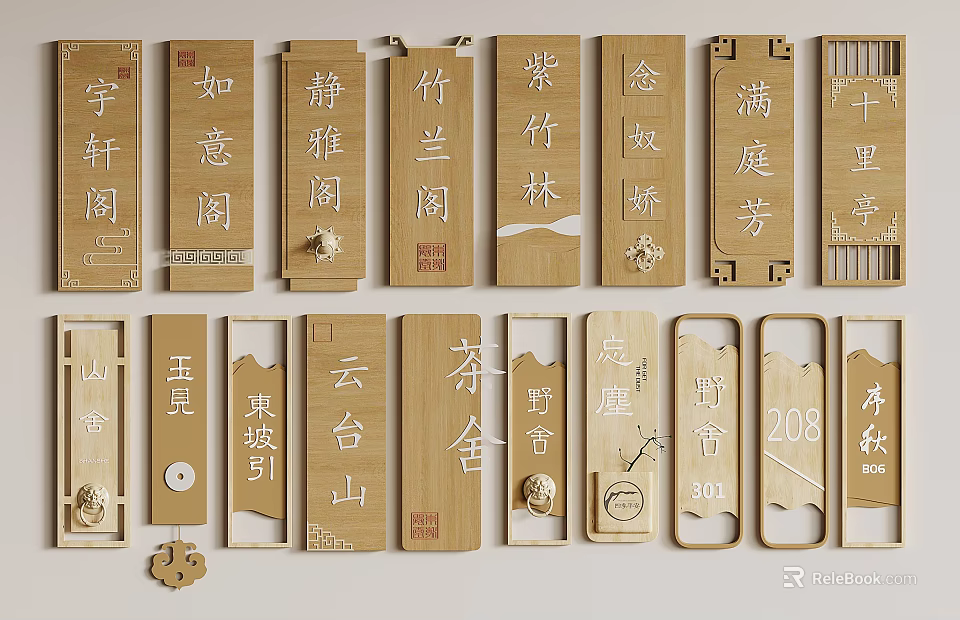 宇轩阁
如意阁
静雅阁
竹兰阁
紫竹林
念奴娇
满庭芳
十里亭
山舍
SHANSHE
玉見
東坡引
云台山
茶舍
野舍
忘塵
FORGET
THE DUST
野舍
301
208
序秋
B06
ReleBook.com